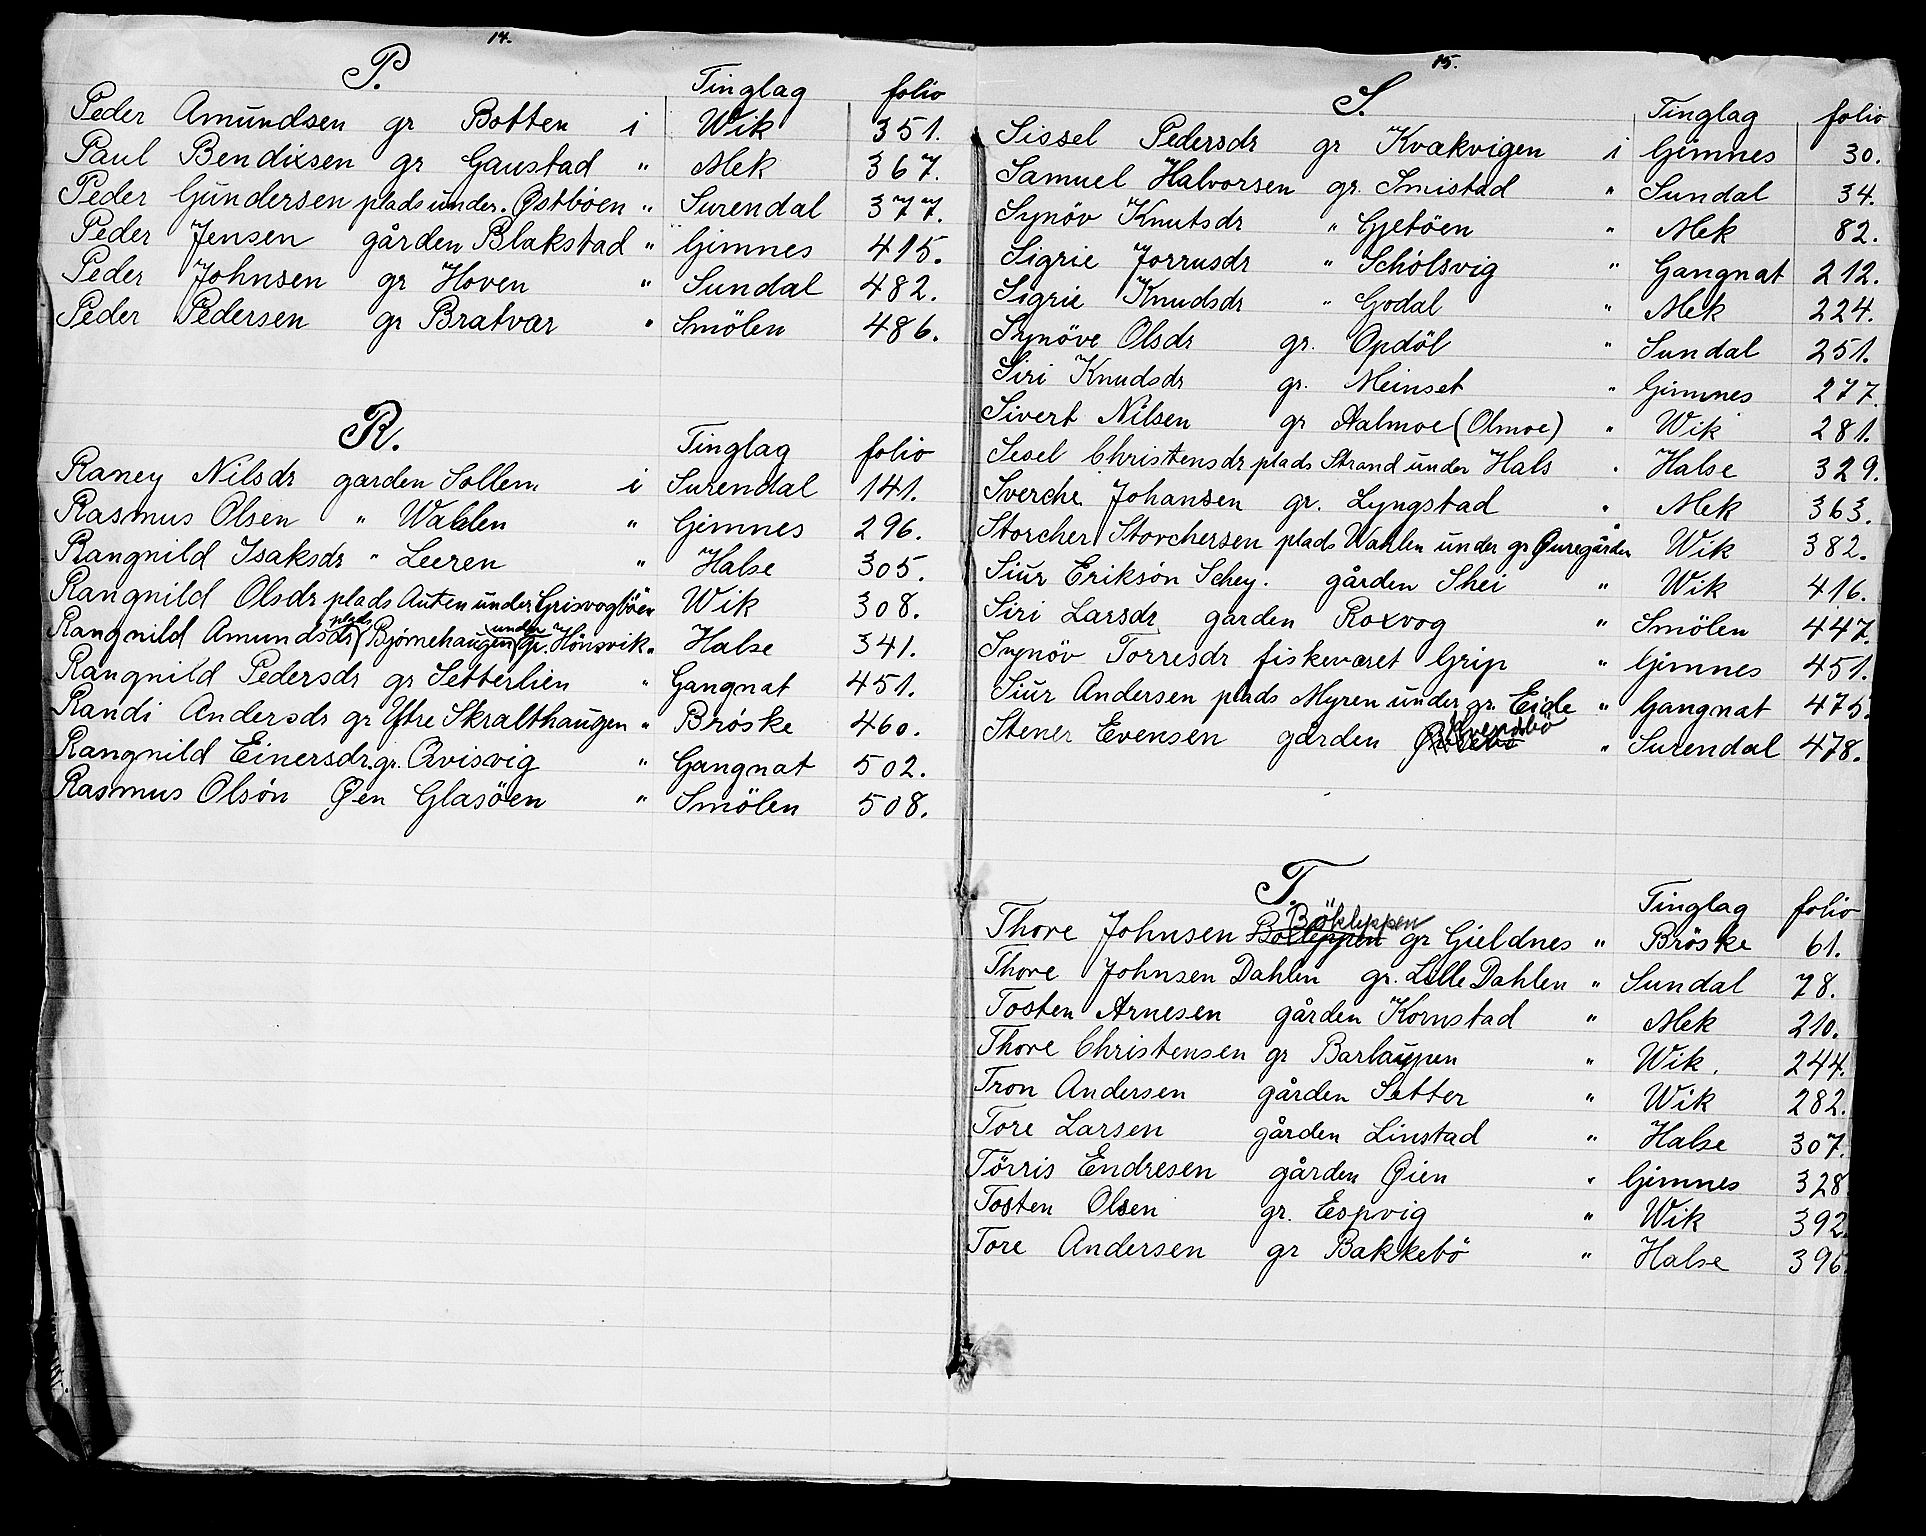 14.
P. Tinglag folio
Peder Amundsen gr Botten i Wik 351.
Paul Bendixsen gr Gaustad " Mek 367.
Peder Gundersen plads under. Østböen " Surendal 377.
Peder Jensen gården Blakstad " Gimnes 415.
Peder Johnsen gr Hoven " Sundal 482.
Peder Pedersen gr Bratvær " Smölen 486.
R. Tinglag folio
Raney Nilsdr garden Sollem i Surendal 141.
Rasmus Olsen " Wahlen " Gimnes 296.
Rangnild Isaksdr " Leeren " Halse 305.
Rangnild Olsdr plads Auten under Grisvogböen Wik 308.
Rangnild Amundsds plads Björnehaugen under gr. Hönsvik " Halse 341.
Rangnild Pedersdr gr Setterlien " Gangnat 451.
Randi Andersdr gr Yttre Skralthaugen " Bröske 460.
Rangnild Einersdr. gr. Qvisvig " Gangnat 502.
Rasmus Olsön Øen Glasöen " Smölen 508.
15.
S. Tinglag folio
Sissel Pedersdr gr Kvakvigen i Gimnes 30.
Samuel Halvorsen gr. Smistad " Sundal 34.
Synöv Knutsdr " Gjetöen " Mek 82.
Sigrie Jorrusdr " Schölsvig " Gangnat 212.
Sigrie Knudsdr " Godal " Mek 224.
Synöve Olsdr gr. Opdöl " Sundal 251.
Siri Knudsdr gr. Meinset " Gimnes 277.
Sivert Nilsen gr Aalmoe (Olmoe) " Wik 281.
Sesel Christensdr plads Strand under Hals " Halse 329.
Sverche Johansen gr. Lyngstad " Mek 363.
Storcher Storchersen plads Wahlen under gr Øuregården Wik 382.
Siur Eriksön Schey. gården Shei " Wik 416.
Siri Larsdr garden Roxvog " Smölen 447.
Synöv Torresdr fiskeværet Grip " Gimnes 451.
Siur Andersen plads Myren under gr. Eide " Gangnat 475.
Stener Evensen gården Qvendbö " Surendal 478.
T. Tinglag folio
Thore Johnsen Bolleppen Bökleppen gr Gieldnes " Bröske 61.
Thore Johnsen Dahlen gr. Lille Dahlen " Sundal 78.
Tosten Arnesen gården Kornstad " Mek 210.
Thore Christensen gr Barlaupen " Wik. 244.
Tron Andersen gården Setter " Wik 282.
Tore Larsen gården Linstad " Halse 307.
Törris Endresen gården Øien " Gimnes 328
Tosten Olsen gr. Espvig " Wik 392
Tore Andersen gr Bakkebö " Halse 396.